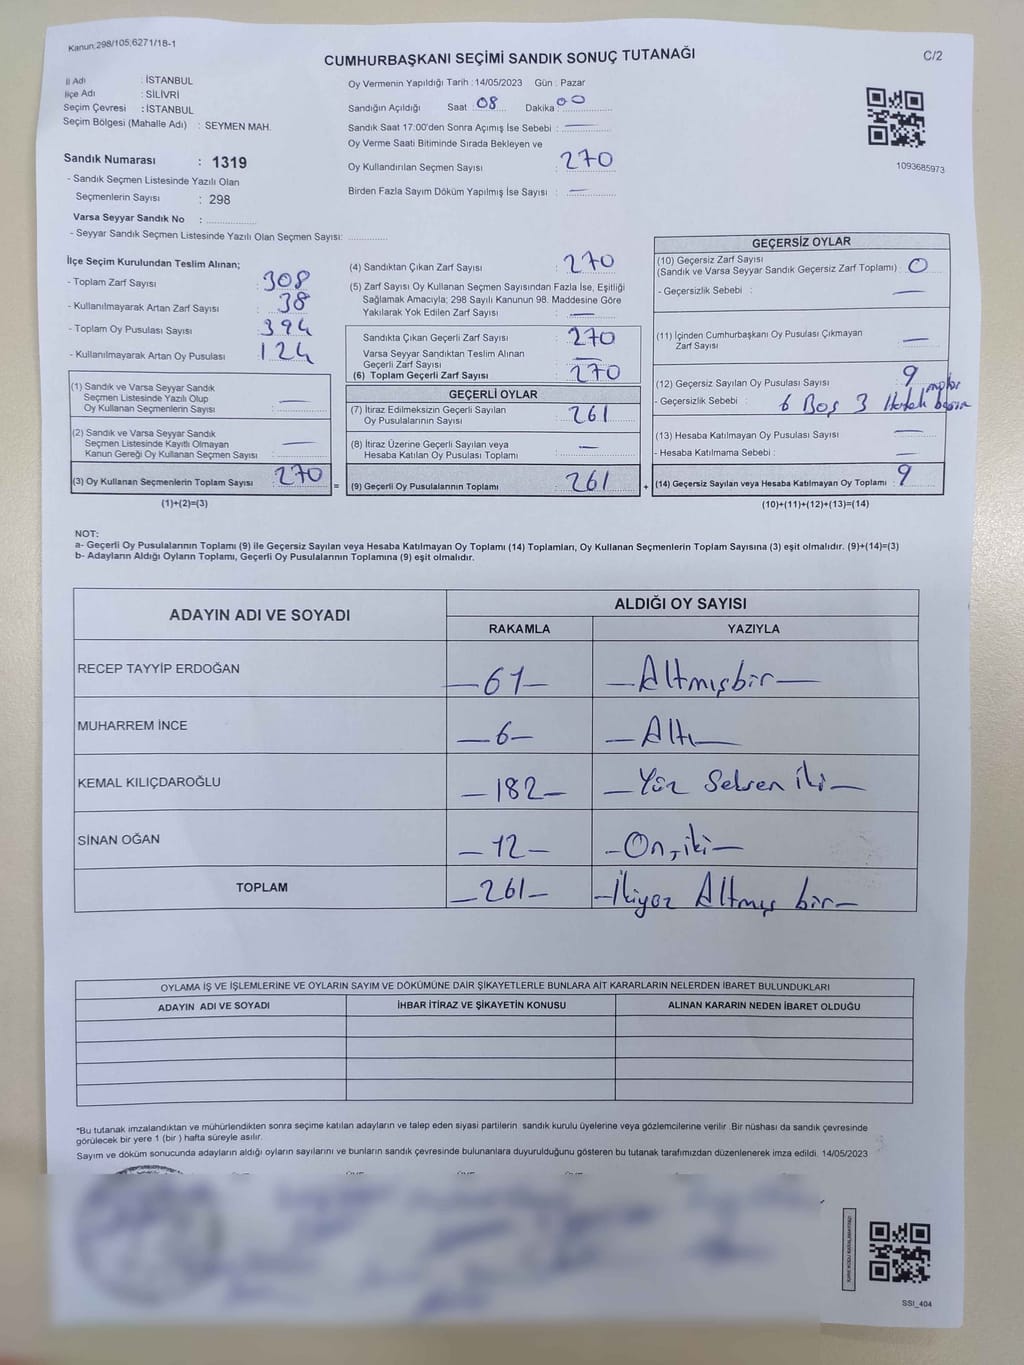 Kanun:298/105;6271/18-1
CUMHURBAŞKANI SEÇİMİ SANDIK SONUÇ TUTANAĞI
C/2
İl Adı : İSTANBUL
İlçe Adı : SİLİVRİ
Seçim Çevresi : İSTANBUL
Seçim Bölgesi (Mahalle Adı) : SEYMEN MAH.
Sandık Numarası : 1319
- Sandık Seçmen Listesinde Yazılı Olan
Seçmenlerin Sayısı : 298
Varsa Seyyar Sandık No :
- Seyyar Sandık Seçmen Listesinde Yazılı Olan Seçmen Sayısı:
Oy Vermenin Yapıldığı Tarih : 14/05/2023 Gün : Pazar
Sandığın Açıldığı Saat : 08 Dakika : 00
Sandık Saat 17:00'den Sonra Açımış İse Sebebi : —
Oy Verme Saati Bitiminde Sırada Bekleyen ve
Oy Kullandırılan Seçmen Sayısı : 270
Birden Fazla Sayım Döküm Yapılmış İse Sayısı : —
1093685973
İlçe Seçim Kurulundan Teslim Alınan;
- Toplam Zarf Sayısı : 308
- Kullanılmayarak Artan Zarf Sayısı : 38
- Toplam Oy Pusulası Sayısı : 394
- Kullanılmayarak Artan Oy Pusulası : 124
(1) Sandık ve Varsa Seyyar Sandık
Seçmen Listesinde Yazılı Olup
Oy Kullanan Seçmenlerin Sayısı : —
(2) Sandık ve Varsa Seyyar Sandık
Seçmen Listesinde Kayıtlı Olmayan
Kanun Gereği Oy Kullanan Seçmen Sayısı : —
(3) Oy Kullanan Seçmenlerin Toplam Sayısı : 270
(1)+(2)=(3)
=
(4) Sandıktan Çıkan Zarf Sayısı : 270
(5) Zarf Sayısı Oy Kullanan Seçmen Sayısından Fazla İse, Eşitliği
Sağlamak Amacıyla; 298 Sayılı Kanunun 98. Maddesine Göre
Yakılarak Yok Edilen Zarf Sayısı : —
Sandıkta Çıkan Geçerli Zarf Sayısı : 270
Varsa Seyyar Sandıktan Teslim Alınan
Geçerli Zarf Sayısı : —
(6) Toplam Geçerli Zarf Sayısı : 270
GEÇERLİ OYLAR
(7) İtiraz Edilmeksizin Geçerli Sayılan
Oy Pusulalarının Sayısı : 261
(8) İtiraz Üzerine Geçerli Sayılan veya
Hesaba Katılan Oy Pusulası Toplamı : —
(9) Geçerli Oy Pusulalarının Toplamı : 261
+
GEÇERSİZ OYLAR
(10) Geçersiz Zarf Sayısı
(Sandık ve Varsa Seyyar Sandık Geçersiz Zarf Toplamı) : 0
- Geçersizlik Sebebi : —
(11) İçinden Cumhurbaşkanı Oy Pusulası Çıkmayan
Zarf Sayısı : —
(12) Geçersiz Sayılan Oy Pusulası Sayısı : 9
- Geçersizlik Sebebi : 6 Boş 3
(13) Hesaba Katılmayan Oy Pusulası Sayısı : —
- Hesaba Katılmama Sebebi : —
(14) Geçersiz Sayılan veya Hesaba Katılmayan Oy Toplamı : 9
(10)+(11)+(12)+(13)=(14)
NOT:
a- Geçerli Oy Pusulalarının Toplamı (9) ile Geçersiz Sayılan veya Hesaba Katılmayan Oy Toplamı (14) Toplamları, Oy Kullanan Seçmenlerin Toplam Sayısına (3) eşit olmalıdır. (9)+(14)=(3)
b- Adayların Aldığı Oyların Toplamı, Geçerli Oy Pusulalarının Toplamına (9) eşit olmalıdır.
ADAYIN ADI VE SOYADI
ALDIĞI OY SAYISI
RAKAMLA YAZIYLA
RECEP TAYYİP ERDOĞAN —61— —Altmışbir—
MUHARREM İNCE —6— —Altı—
KEMAL KILIÇDAROĞLU —182— —Yüz Seksen İki—
SİNAN OĞAN —12— —On,iki—
TOPLAM —261— —İkiyüz Altmış bir—
OYLAMA İŞ VE İŞLEMLERİNE VE OYLARIN SAYIM VE DÖKÜMÜNE DAİR ŞİKAYETLERLE BUNLARA AİT KARARLARIN NELERDEN İBARET BULUNDUKLARI
ADAYIN ADI VE SOYADI İHBAR İTİRAZ VE ŞİKAYETİN KONUSU ALINAN KARARIN NEDEN İBARET OLDUĞU
*Bu tutanak imzalandıktan ve mühürlendikten sonra seçime katılan adayların ve talep eden siyasi partilerin sandık kurulu üyelerine veya gözlemcilerine verilir .Bir nüshası da sandık çevresinde
görülecek bir yere 1 (bir ) hafta süreyle asılır.
Sayım ve döküm sonucunda adayların aldığı oyların sayılarını ve bunların sandık çevresinde bulunanlara duyurulduğunu gösteren bu tutanak tarafımızdan düzenlenerek imza edildi. 14/05/2023
SSI_404